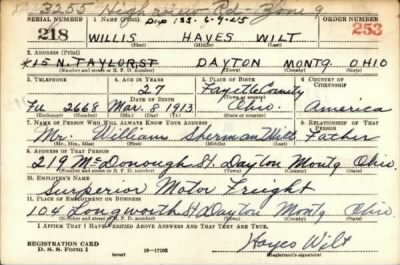 3255 Highview Rd - Zone 9
SERIAL NUMBER 1. NAME (Print) Dup 133. 6-9-25 ORDER NUMBER
218 WILLIS HAYES WILT 253
(First) (Middle) (Last)
2. ADDRESS (Print)
*15 N. TAYLOR ST DAYTON MONTG OHIO
(Number and street or R. F. D. number) (Town) (County) (State)
3. TELEPHONE 4. AGE IN YEARS 5. PLACE OF BIRTH 6. COUNTRY OF CITIZENSHIP
27 Fayette County
DATE OF BIRTH
FU 2668 Mar. 8 1913 Ohio. America
(Exchange) (Number) (Mo.) (Day) (Yr.) (State or country)
7. NAME OF PERSON WHO WILL ALWAYS KNOW YOUR ADDRESS 8. RELATIONSHIP OF THAT PERSON
Mr. William Sherman Wilt Father
(Mr., Mrs., Miss) (First) (Middle) (Last)
9. ADDRESS OF THAT PERSON
219 McDonough St. Dayton Montg Ohio.
(Number and street or R. F. D. number) (Town) (County) (State)
10. EMPLOYER'S NAME
Surperior Motor Freight
11. PLACE OF EMPLOYMENT OR BUSINESS
104 Longworth St Dayton Montg Ohio
(Number and street or R. F. D. number) (Town) (County) (State)
I AFFIRM THAT I HAVE VERIFIED ABOVE ANSWERS AND THAT THEY ARE TRUE.
REGISTRATION CARD
D. S. S. Form 1 (over) 16-17105 Hayes Wilt
(Registrant's signature)